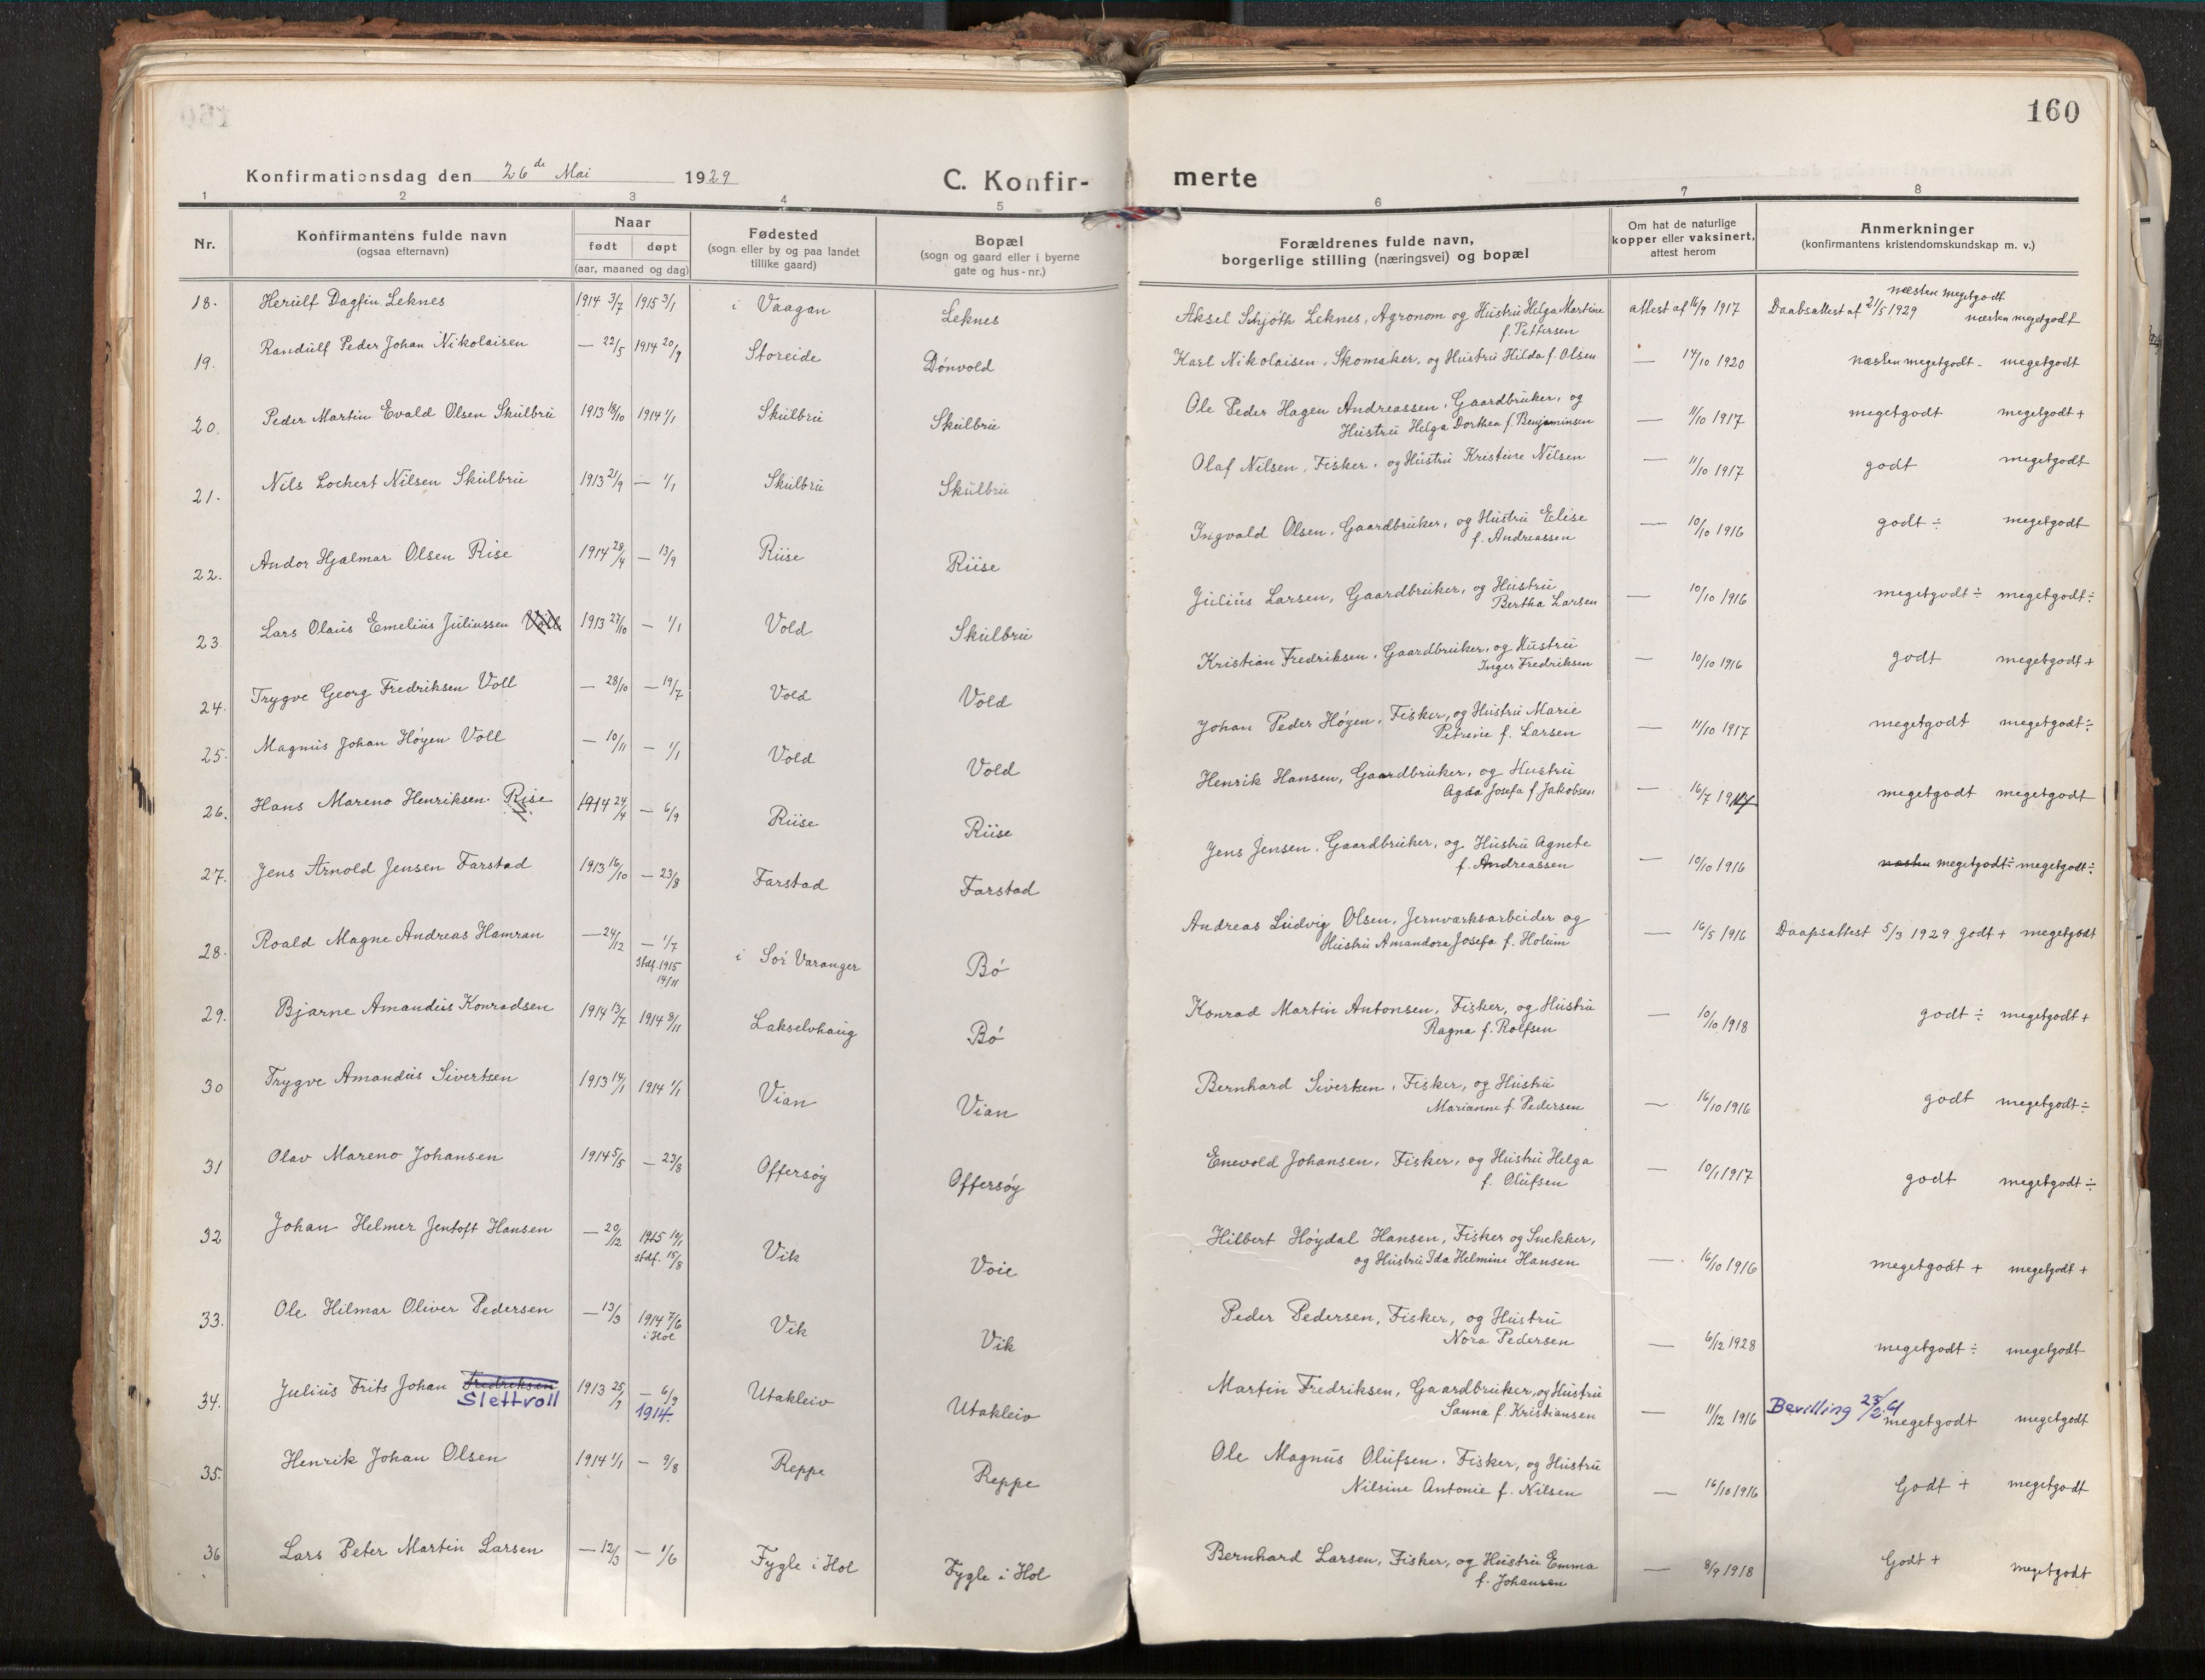 160
Konfirmationsdag den 26de Mai 1929
C. Konfir- merte
1 2 3 4 5 6 7 8
Nr.
Konfirmantens fulde navn
(ogsaa efternavn)
Naar
født døpt
(aar, maaned og dag)
Fødested
(sogn eller by og paa landet
tillike gaard)
Bopæl
(sogn og gaard eller i byerne
gate og hus-nr.)
Forældrenes fulde navn,
borgerlige stilling (næringsvei) og bopæl
Om hat de naturlige
kopper eller vaksinert,
attest herom
Anmerkninger
(konfirmantens kristendomskundskap m. v.)
18. Herulf Dagfin Leknes 1914 3/7 1915 3/1 i Vaagan Leknes Aksel Schjøth Leknes, Agronom og Hustru Helga Martine attest af 16/9 1917 Daabsattest af 21/5 1929 næsten megetgodt næsten megetgodt
f. Pettersen
19. Randulf Peder Johan Nikolaisen — 22/5 1914 20/9 Storeide Dønvold Karl Nikolaisen, Skomaker, og Hustru Hilda f. Olsen — 14/10 1920 næsten megetgodt - megetgodt
20. Peder Martin Evald Olsen Skulbru 1913 18/10 1914 1/1 Skulbru Skulbru Ole Peder Hagen Andreassen, Gaardbruker, og — 11/10 1917 megetgodt megetgodt +
Hustru Helga Dorthea f. Benjaminsen
21. Nils Lochert Nilsen Skulbru 1913 21/9 — 1/1 Skulbru Skulbru Olaf Nilsen, Fisker, og Hustru Kristine Nilsen — 11/10 1917 godt megetgodt
22. Andor Hjalmar Olsen Rise 1914 28/4 — 13/9 Riise Riise Ingvald Olsen, Gaardbruker, og Hustru Elise — 10/10 1916 godt ÷ megetgodt
f. Andreassen
23. Lars Olaus Emelius Juliussen Voll 1913 27/10 — 1/1 Vold Skulbru Julius Larsen, Gaardbruker, og Hustru — 10/10 1916 megetgodt ÷ megetgodt ÷
Bertha Larsen
24. Trygve Georg Fredriksen Voll — 28/10 — 19/7 Vold Vold Kristian Fredriksen, Gaardbruker, og Hustru — 10/10 1916 godt megetgodt +
Inger Fredriksen
25. Magnus Johan Høyen Voll — 10/11 — 1/1 Vold Vold Johan Peder Høyen, Fisker, og Hustru Marie — 11/10 1917 megetgodt megetgodt ÷
Petrine f. Larsen
26. Hans Mareno Henriksen Rise 1914 24/4 — 6/9 Riise Riise Henrik Hansen, Gaardbruker, og Hustru — 16/7 1917 megetgodt megetgodt
Agda Josefa f. Jakobsen
27. Jens Arnold Jensen Farstad 1913 16/10 — 23/8 Farstad Farstad Jens Jensen, Gaardbruker, og Hustru Agnete — 10/10 1916 næsten megetgodt ÷ megetgodt ÷
f. Andreassen
28. Roald Magne Andreas Hamran — 24/12 — 1/7 i Sør Varanger Bø Andreas Ludvig Olsen, Jernværksarbeider og — 16/5 1916 Daapsattest 5/3 1929 godt + megetgodt
stdf. 1915 14/11 Hustru Amandora Josefa f. Holum
29. Bjarne Amandus Konradsen 1914 13/7 1914 8/11 Lakselvhaug Bø Konrad Martin Antonsen, Fisker, og Hustru — 10/10 1918 godt ÷ megetgodt +
Ragna f. Rolfsen
30 Trygve Amandus Sivertsen 1913 14/1 1914 1/1 Vian Vian Bernhard Sivertsen, Fisker, og Hustru — 16/10 1916 godt megetgodt ÷
Marianne f. Pedersen
31 Olav Mareno Johansen 1914 5/5 — 23/8 Offersøy Offersøy Enevold Johansen, Fisker, og Hustru Helga — 10/1 1917 godt megetgodt ÷
f. Olufsen
32 Johan Helmer Jentoft Hansen — 20/12 1915 10/1 Vik Voie Hilbert Høydal Hansen, Fisker og Snekker, — 16/10 1916 megetgodt + megetgodt +
stdf. 15/8 og Hustru Ida Helmine Hansen
33. Ole Hilmar Oliver Pedersen — 13/3 1914 7/6 Vik Vik Peder Pedersen, Fisker, og Hustru — 6/12 1928 megetgodt ÷ megetgodt
i Hol Nora Pedersen
34. Julius Frits Johan Fredriksen 1913 25/9 — 6/9 Utakleiv Utakleiv Martin Fredriksen, Gaardbruker, og Hustru — 11/12 1916 Bevilling megetgodt megetgodt
Slettvoll 1914. Sanna f. Kristiansen
35. Henrik Johan Olsen 1914 1/1 — 9/8 Reppe Reppe Ole Magnus Olufsen, Fisker, og Hustru — 16/10 1916 Godt + megetgodt
Nilsine Antonie f. Nilsen
36 Lars Peter Martin Larsen — 12/3 — 1/6 Fygle i Hol Fygle i Hol Bernhard Larsen, Fisker, og Hustru Emma — 8/9 1918 Godt + megetgodt
f. Johansen